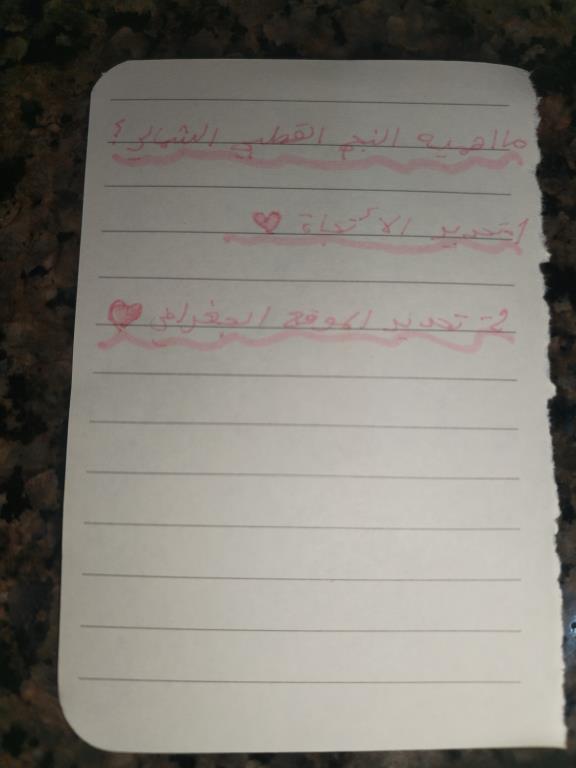 ما اهميه النجم القطبي الشمالي؟
1- تحديد الأتجاة
2- تحديد الموقع الجغرافي